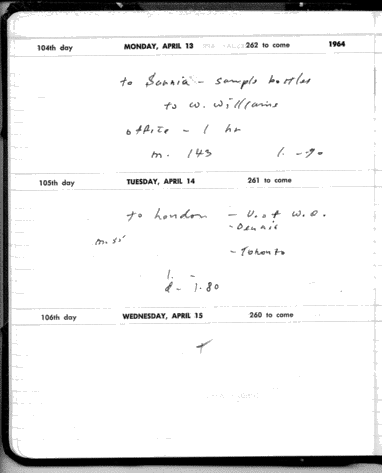 104th day MONDAY, APRIL 13 262 to come 1964
to Sarnia - sample bottles
to W. Williams
office - 1 hr
m. 143 1. - 90
105th day TUESDAY, APRIL 14 261 to come
to London - U. of W.O.
- Dennis
m. 55
- Toronto
1. -
d - 1.80
106th day WEDNESDAY, APRIL 15 260 to come